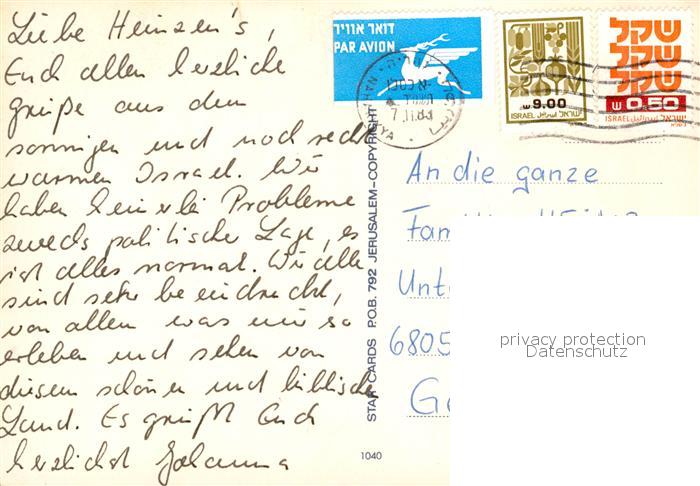 Liebe Heinzen's,
Euch allen herzliche
grüße aus dem
sonnigen und noch recht
warmen Israel. Wir
haben keinerlei Probleme
zwecks politischer Lage, es
ist alles normal. Wir alle
sind sehr beeindruckt,
von allem was wir so
erleben und sehen von
diesem schönen und biblischen
Land. Es grüßt Euch
herzlichst Johanna
דואר אוויר
PAR AVION
9.00
ISRAEL اسرائيل ישראל
שקל
שקל
שקל
0.50
ISRAEL اسرائيل ישראל
7.11.83
STAR CARDS P.O.B. 792 JERUSALEM-COPYRIGHT
1040
An die ganze
6805
privacy protection
Datenschutz